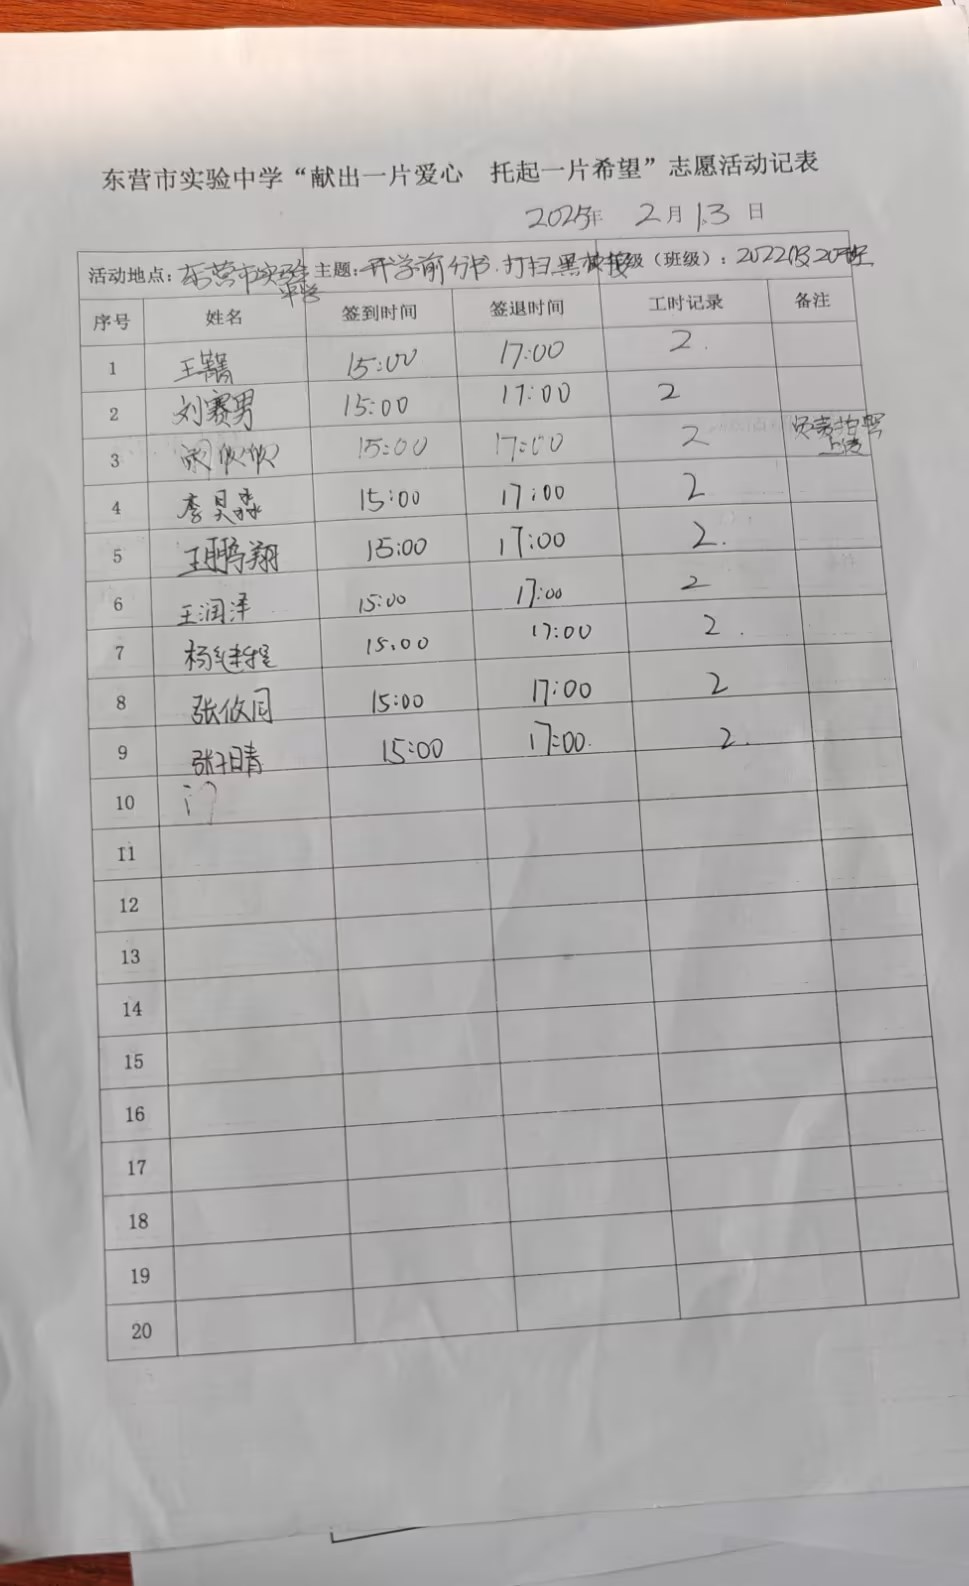 东营市实验中学“献出一片爱心 托起一片希望”志愿活动记表
2025年 2月13日
活动地点：东营市实验中学 主题：开学前分书.打扫黑板 级（班级）：2022级20班
序号 姓名 签到时间 签退时间 工时记录 备注
1 15:00 17:00 2.
2 刘赛男 15:00 17:00 2
3 15:00 17:00 2 负责拍照上传
4 李昊淼 15:00 17:00 2
5 王鹏翔 15:00 17:00 2.
6 王润泽 15:00 17:00 2
7 杨继程 15:00 17:00 2.
8 张攸同 15:00 17:00 2
9 张子晴 15:00 17:00. 2.
10
11
12
13
14
15
16
17
18
19
20